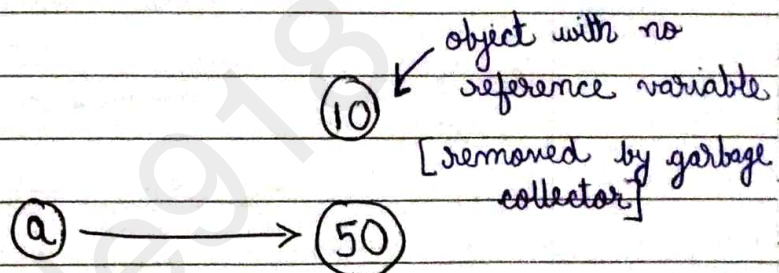 object with no
reference variable
10
[removed by garbage
collector]
a
50
e918